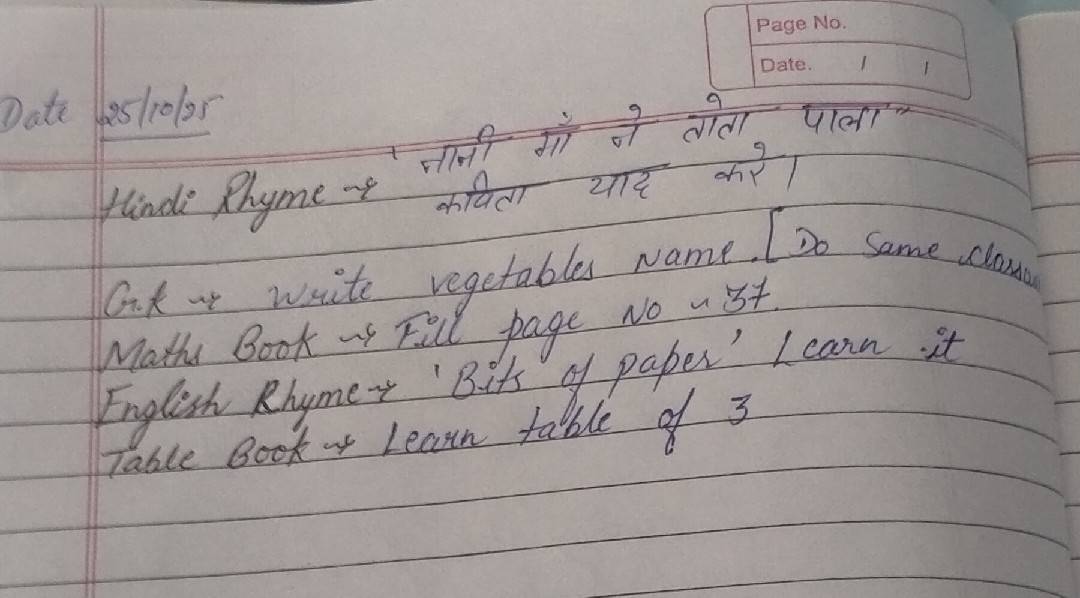 Page No.
Date. / /
Date 25/10/25
Hindi Rhyme → 'नानी माँ ने तोता पाला"
कविता याद करे।
G.K → Write vegetables Name. [Do Same
Maths Book → Fill page No - 37.
English Rhyme → 'Bits of paper' Learn it
Table Book → Learn table of 3